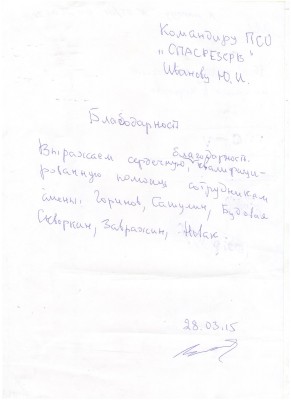 Командиру ПСО
"СПАСРЕЗЕРВ"
Иванову Ю.И.
Благодарност
Выражаем сердечную благодарность.
рованную помощь сотрудникам
Горинов, Сашулин, Будовая
Скворкин, Завражин,
28.03.15